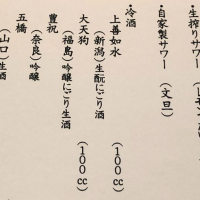 ・生搾りサワー（レモン
・自家製サワー（文旦）
・冷酒
上善如水（100cc）
（新潟）生酛にごり酒
大天狗（100cc）
（福島）吟醸にごり生酒
豊祝
（奈良）吟醸
五橋
（山口）生酒